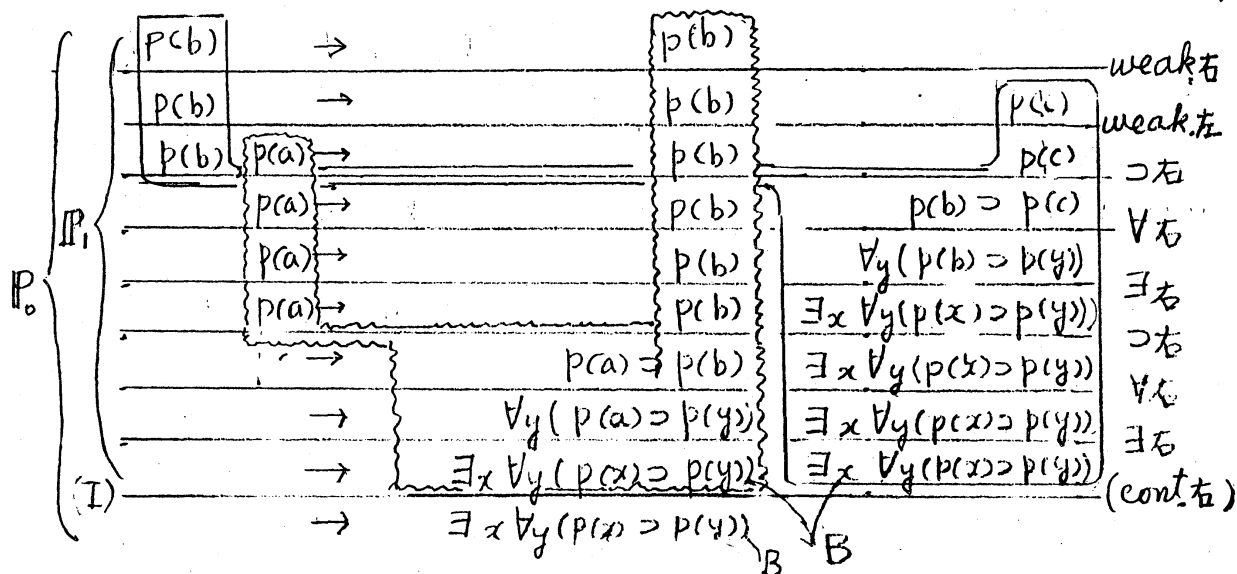 p(b) → p(b) weak.右
p(b) → p(b) p(c) weak.左
p(b) p(a) → p(b) p(c) ⊃右
p(a) → p(b) p(b) ⊃ p(c) ∀右
p(a) → p(b) ∀y(p(b) ⊃ p(y)) ∃右
p(a) → p(b) ∃x∀y(p(x) ⊃ p(y)) ⊃右
→ p(a) ⊃ p(b) ∃x∀y(p(x) ⊃ p(y)) ∀右
→ ∀y(p(a) ⊃ p(y)) ∃x∀y(p(x) ⊃ p(y)) ∃右
(I) → ∃x∀y(p(x) ⊃ p(y)) ∃x∀y(p(x) ⊃ p(y)) (cont.右)
→ ∃x∀y(p(x) ⊃ p(y)) B B
ℙ₀
ℙ₁